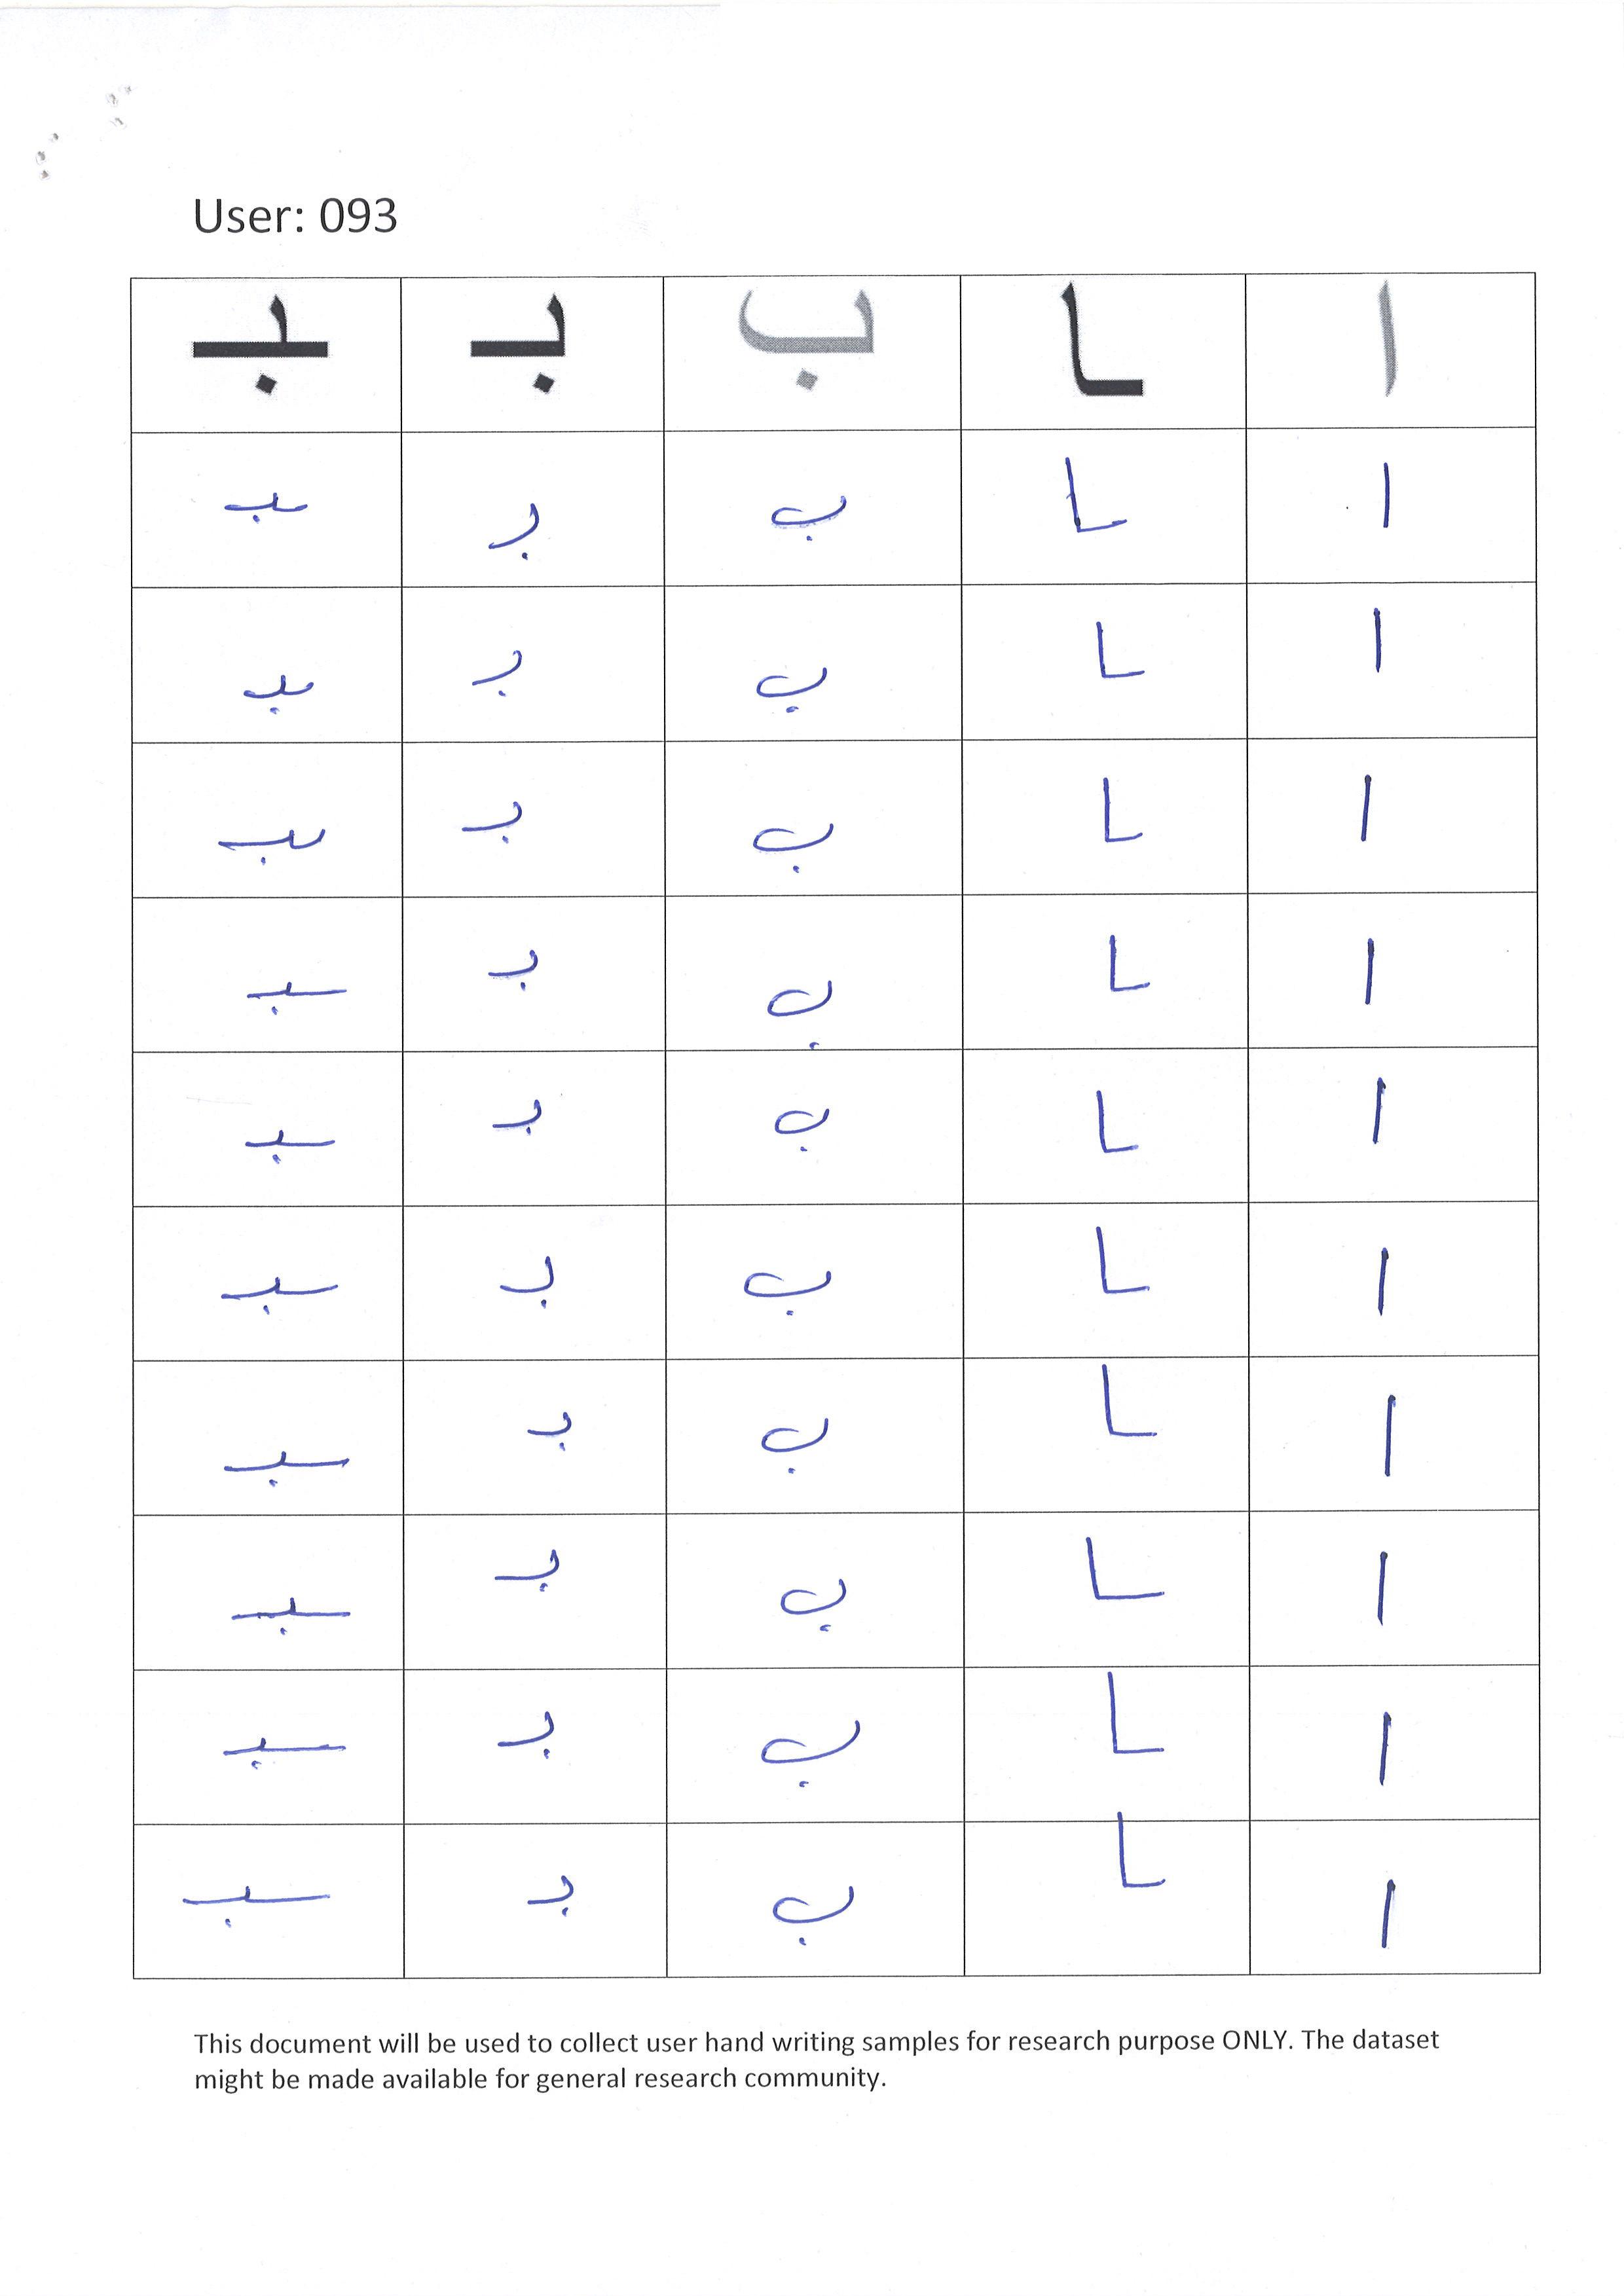 User: 093
ا ـا ب بـ ـبـ
ا ـا ب بـ ـبـ
ا ـا ب بـ ـبـ
ا ـا ب بـ ـبـ
ا ـا ب بـ ـبـ
ا ـا ب بـ ـبـ
ا ـا ب بـ ـبـ
ا ـا ب بـ ـبـ
ا ـا ب بـ ـبـ
ا ـا ب بـ ـبـ
ا ـا ب بـ ـبـ
This document will be used to collect user hand writing samples for research purpose ONLY. The dataset
might be made available for general research community.